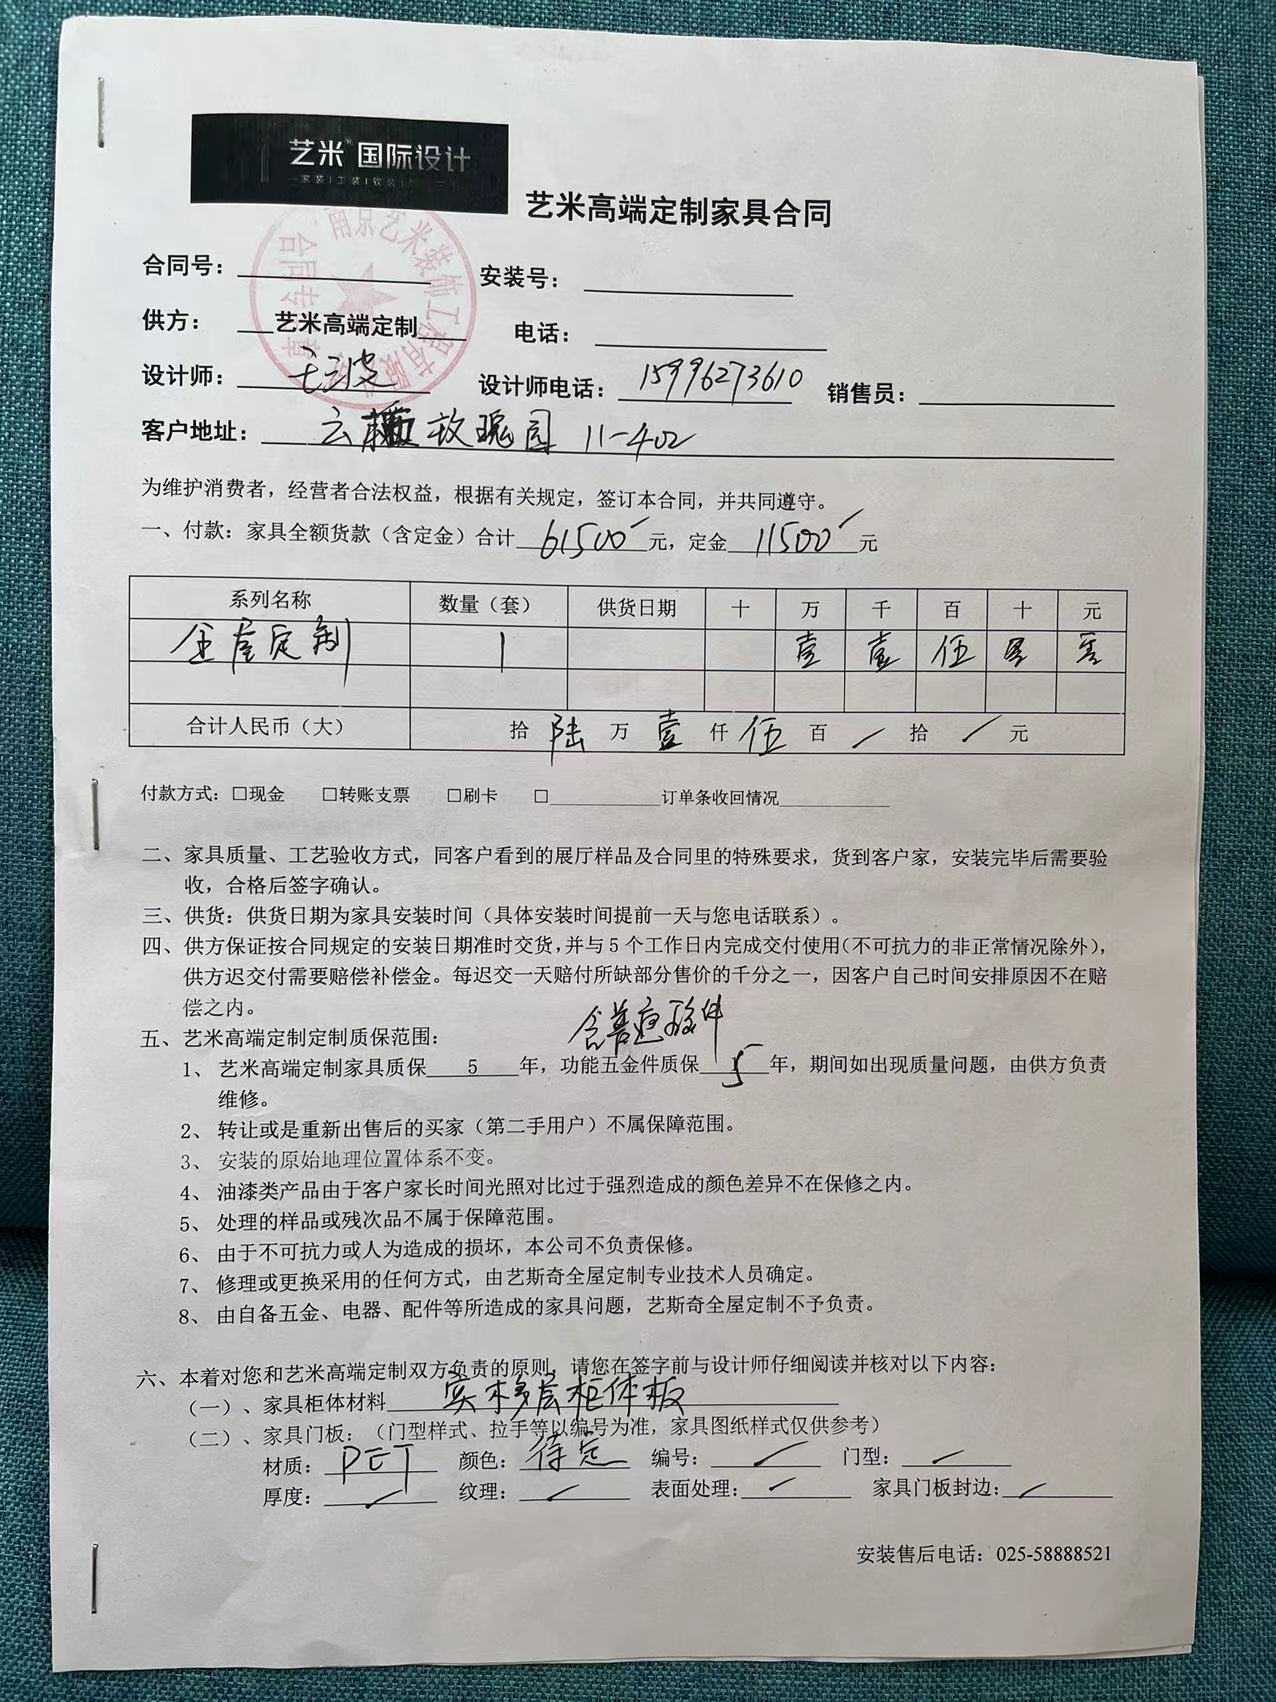 艺米 国际设计
艺米高端定制家具合同
南京艺米装饰工程有限
合同专 章
合同号： 安装号：
供方： 艺米高端定制 电话：
设计师： 设计师电话： 15996273610 销售员：
客户地址： 云 玫瑰园 11-402
为维护消费者，经营者合法权益，根据有关规定，签订本合同，并共同遵守。
一、付款：家具全额货款（含定金）合计 61500 元，定金 11500 元
系列名称 数量（套） 供货日期 十 万 千 百 十 元
全屋定制 1 壹 壹 伍 零 零
合计人民币（大） 拾 陆 万 壹 仟 伍 百 / 拾 / 元
付款方式：□现金 □转账支票 □刷卡 □ 订单条收回情况
二、家具质量、工艺验收方式，同客户看到的展厅样品及合同里的特殊要求，货到客户家，安装完毕后需要验
收，合格后签字确认。
三、供货：供货日期为家具安装时间（具体安装时间提前一天与您电话联系）。
四、供方保证按合同规定的安装日期准时交货，并与5个工作日内完成交付使用（不可抗力的非正常情况除外），
供方迟交付需要赔偿补偿金。每迟交一天赔付所缺部分售价的千分之一，因客户自己时间安排原因不在赔
偿之内。
五、艺米高端定制定制质保范围：
1、艺米高端定制家具质保 5 年，功能五金件质保 5 年，期间如出现质量问题，由供方负责
维修。
2、转让或是重新出售后的买家（第二手用户）不属保障范围。
3、安装的原始地理位置体系不变。
4、油漆类产品由于客户家长时间光照对比过于强烈造成的颜色差异不在保修之内。
5、处理的样品或残次品不属于保障范围。
6、由于不可抗力或人为造成的损坏，本公司不负责保修。
7、修理或更换采用的任何方式，由艺斯奇全屋定制专业技术人员确定。
8、由自备五金、电器、配件等所造成的家具问题，艺斯奇全屋定制不予负责。
六、本着对您和艺米高端定制双方负责的原则，请您在签字前与设计师仔细阅读并核对以下内容：
（一）、家具柜体材料 实木多层柜体板
（二）、家具门板：（门型样式、拉手等以编号为准，家具图纸样式仅供参考）
材质： PET 颜色： 待定 编号： / 门型： /
厚度： / 纹理： / 表面处理： / 家具门板封边： /
安装售后电话：025-58888521